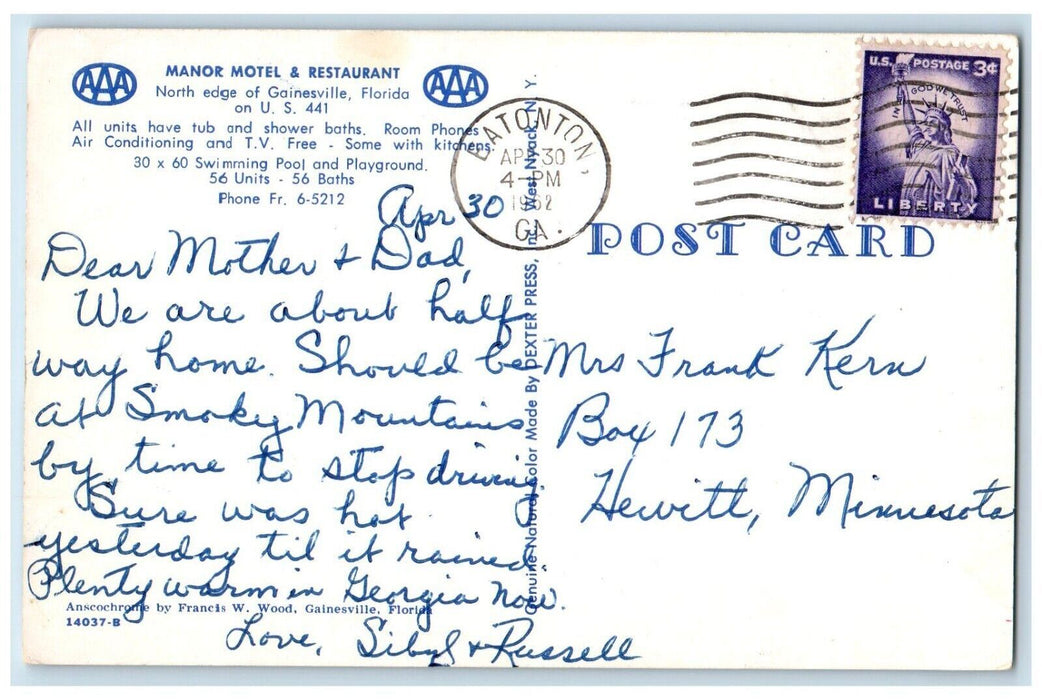 AAA
MANOR MOTEL & RESTAURANT
North edge of Gainesville, Florida
on U. S. 441
AAA
All units have tub and shower baths. Room Phones
Air Conditioning and T.V. Free - Some with kitchens.
30 x 60 Swimming Pool and Playground.
56 Units - 56 Baths
Phone Fr. 6-5212
EATONTON,
APR 30
4-PM
1962
GA.
U.S. POSTAGE 3¢
IN GOD WE TRUST
LIBERTY
POST CARD
Apr 30
Dear Mother + Dad,
We are about half
way home. Should be
at Smoky Mountains
by time to stop driving.
Sure was hot
yesterday til it rained.
Plenty warm in Georgia now.
Love, Sibyl + Russell
Anscochrome by Francis W. Wood, Gainesville, Florida
14037-B
Genuine Natural Color Made By DEXTER PRESS, Inc. West Nyack, N. Y.
Mrs Frank Kern
Box 173
Hewitt, Minnesota